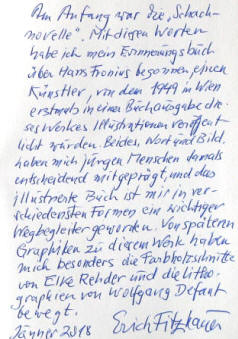 Am Anfang war die „Schach-
novelle". Mit diesen Worten
habe ich mein Erinnerungsbuch
über Hans Fronius begonnen, einen
Künstler, von dem 1949 in Wien
erstmals in einer Buchausgabe die-
ses Werkes Illustrationen veröffent
licht wurden. Beides, Wort und Bild,
haben mich jungen Menschen damals
entscheidend mitgeprägt, und das
illustrierte Buch ist mir in ver-
schiedensten Formen ein wichtiger
Wegbegleiter geworden. Von späteren
Graphiken zu diesem Werk haben
mich besonders die Farbholzschnitte
von Elke Rehder und die Litho-
graphien von Wolfgang Defant
bewegt.
Jänner 2018 Erich Fitzbauer